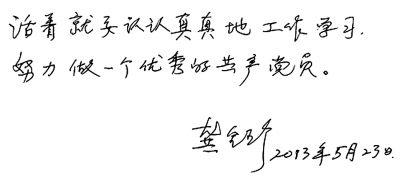 活着就要认认真真地工作学习.
努力做一个优秀的共产党员。
龚全珍 2013年5月23日.